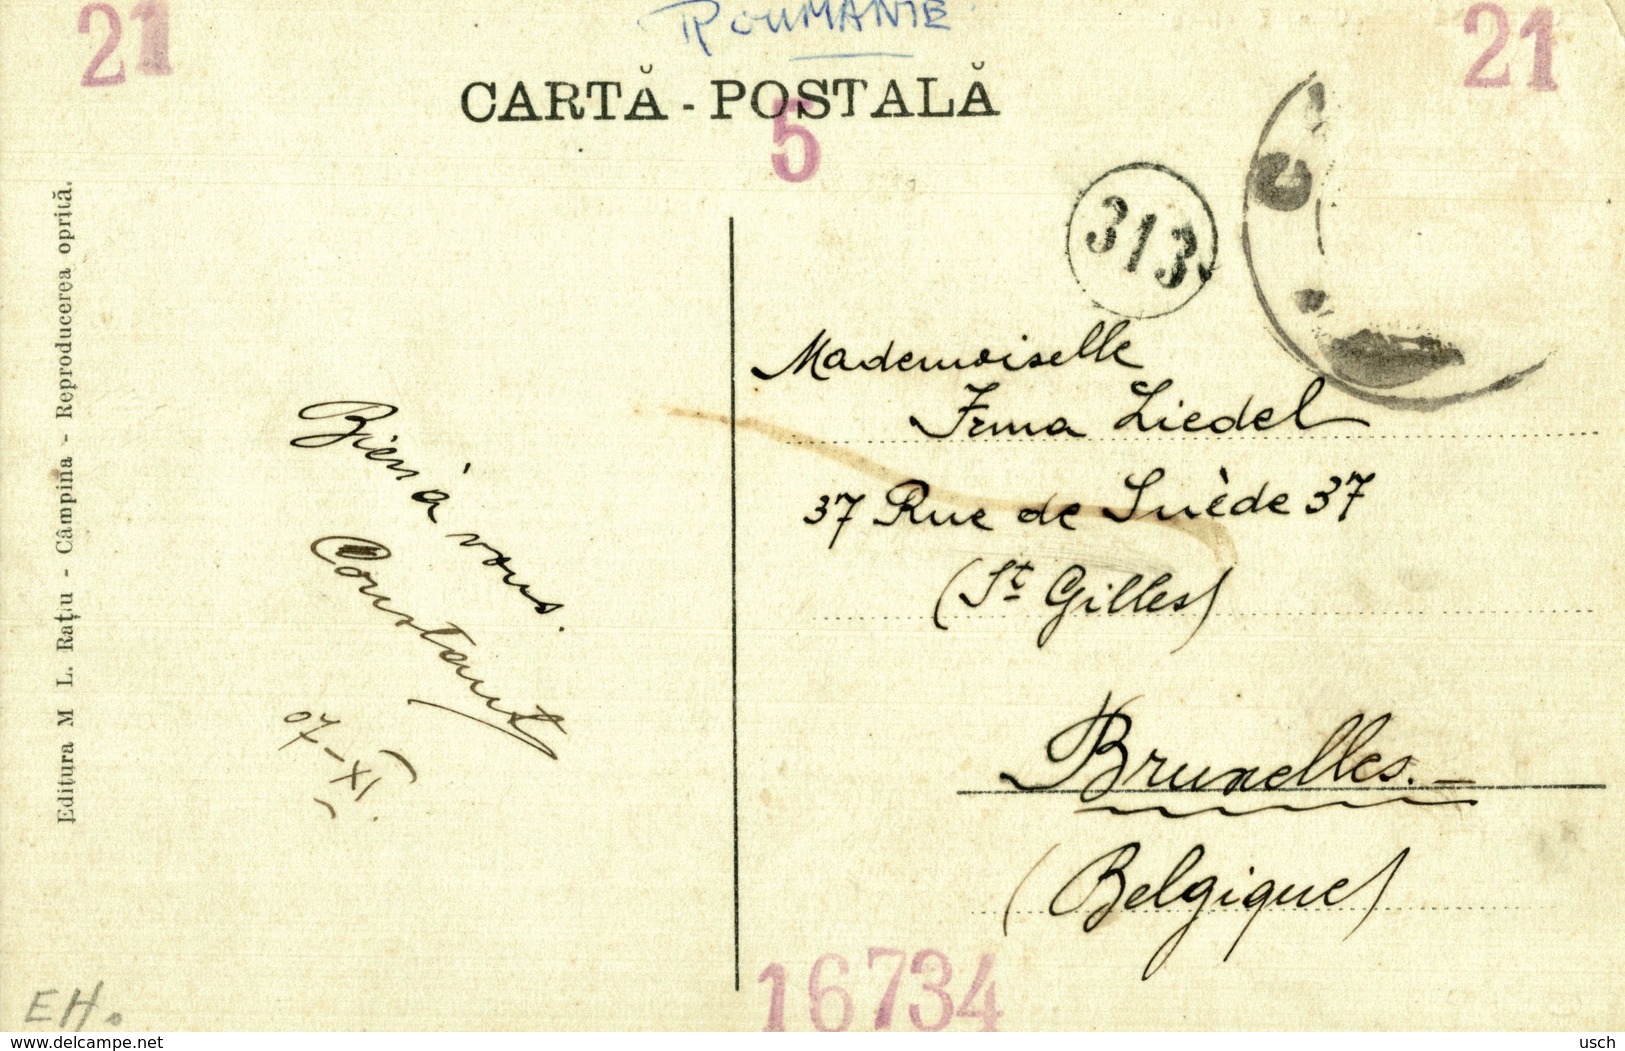 ROUMANIE
21
21
CARTĂ - POSTALĂ
5
313
Editura M L. Rațu - Câmpina - Reproducerea oprită.
Bien à vous.
Constant
07-XI.
Mademoiselle
Irma Liedel
37 Rue de Suède 37
(St Gilles)
Bruxelles.-
(Belgique)
16734
EH.
www.delcampe.net
usch